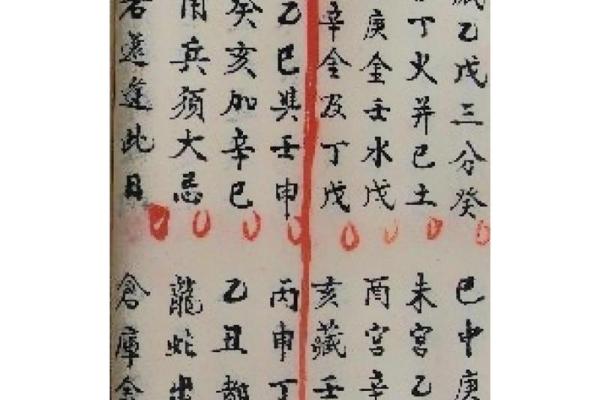 藏乙戊三分癸巳中庚
丁火并己土未宮乙
庚金壬水戊酉宮辛
辛金及丁戊亥藏壬
乙巳與壬申丙申丁
癸亥加辛巳乙丑都
用兵須大忌龍蛇出
若還逢此日倉庫金